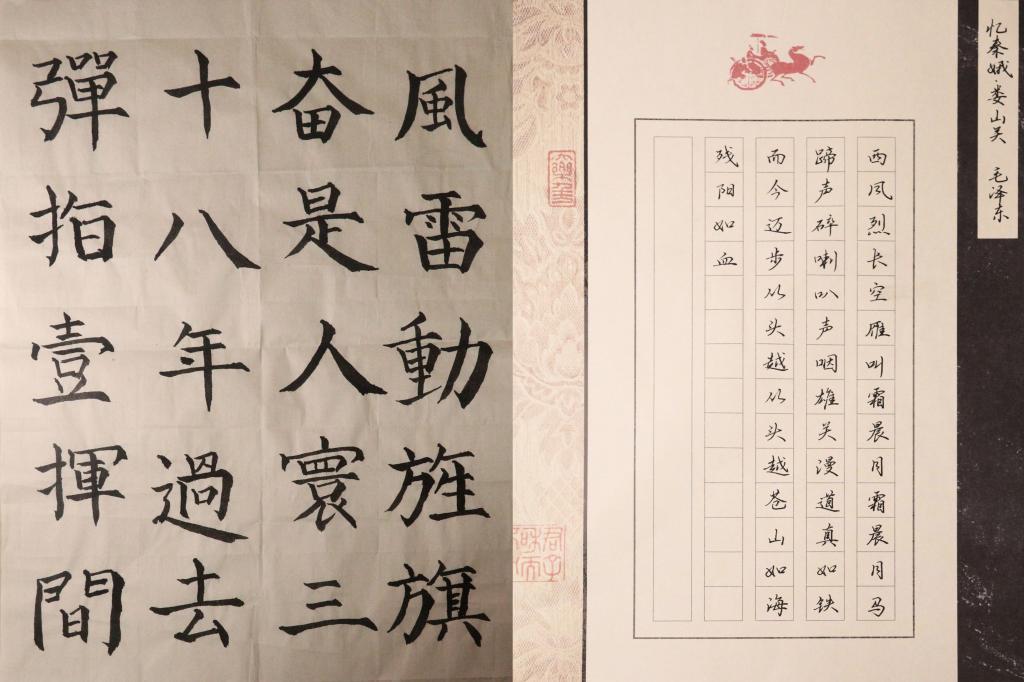 風雷動旌旗
奋是人寰三
十八年過去
彈指壹揮間
忆秦娥·娄山关 毛泽东
西风烈长空雁叫霜晨月霜晨月马
蹄声碎喇叭声咽雄关漫道真如铁
而今迈步从头越从头越苍山如海
残阳如血